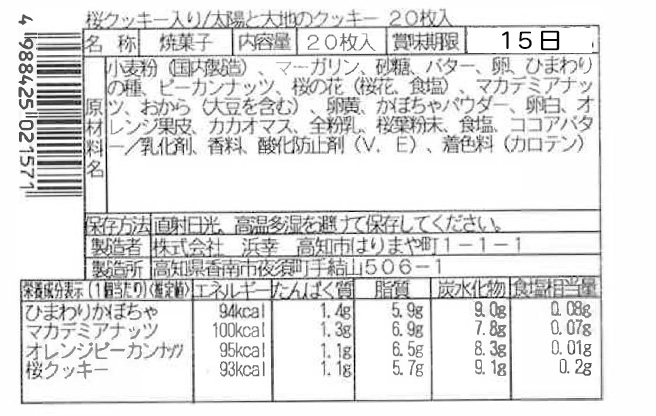 桜クッキー入り/太陽と大地のクッキー 20枚入
名 称 焼菓子 内容量 20枚入 賞味期限 15日
原材料名
小麦粉（国内製造）、マーガリン、砂糖、バター、卵、ひまわり
の種、ピーカンナッツ、桜の花（桜花、食塩）、マカデミアナッ
ツ、おから（大豆を含む）、卵黄、かぼちゃパウダー、卵白、オ
レンジ果皮、カカオマス、全粉乳、桜葉粉末、食塩、ココアバタ
ー／乳化剤、香料、酸化防止剤（V．E）、着色料（カロテン）
保存方法 直射日光、高温多湿を避けて保存してください。
製造者 株式会社 浜幸 高知市はりまや町1－1－1
製造所 高知県香南市夜須町手結山506－1
栄養成分表示（1個当たり）〈推定値〉 エネルギー たんぱく質 脂質 炭水化物 食塩相当量
ひまわりかぼちゃ 94kcal 1.4g 5.9g 9.0g 0.08g
マカデミアナッツ 100kcal 1.3g 6.9g 7.8g 0.07g
オレンジピーカンナッツ 95kcal 1.1g 6.5g 8.3g 0.01g
桜クッキー 93kcal 1.1g 5.7g 9.1g 0.2g
4 988425 021571